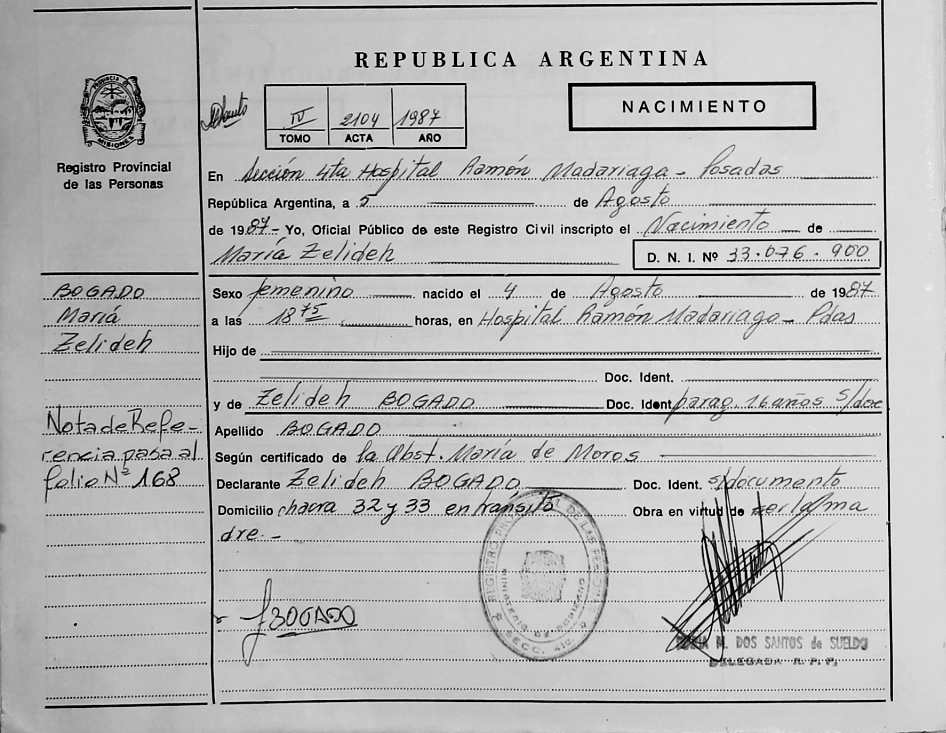 REPUBLICA ARGENTINA
PROVINCIA DE MISIONES
Registro Provincial
de las Personas
IV 2104 1987
TOMO ACTA AÑO
NACIMIENTO
En Sección 4ta Hospital Ramón Madariaga - Posadas
República Argentina, a 5 de Agosto
de 1987 - Yo, Oficial Público de este Registro Civil inscripto el Nacimiento de
María Zelideh
D. N. I. Nº 33.076.900
BOGADO
María
Zelideh
Sexo femenino nacido el 4 de Agosto de 1987
a las 18 75 horas, en Hospital Ramón Madariaga - Pdas
Hijo de
Doc. Ident.
y de Zelideh BOGADO Doc. Ident parag. 16 años s/doc
Apellido BOGADO
Nota de Refe-
rencia pasa al
folio Nº 168
Según certificado de la Obst. María de Moros
Declarante Zelideh BOGADO Doc. Ident. s/documento
Domicilio chacra 32 y 33 en tránsito Obra en virtud de ser la ma
dre. -
REGISTRO PROVINCIAL DE LAS PERSONAS
MINISTERIO DE GOBIERNO
SECC. 4ta
BOGADO
M. DOS SANTOS de SUELDO
DELEGADA R. P. P.